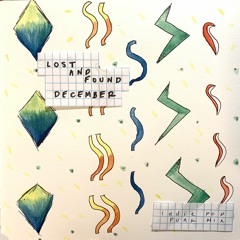 LOST
AND
FOUND
DECEMBER
indie POP
FUNK MIX